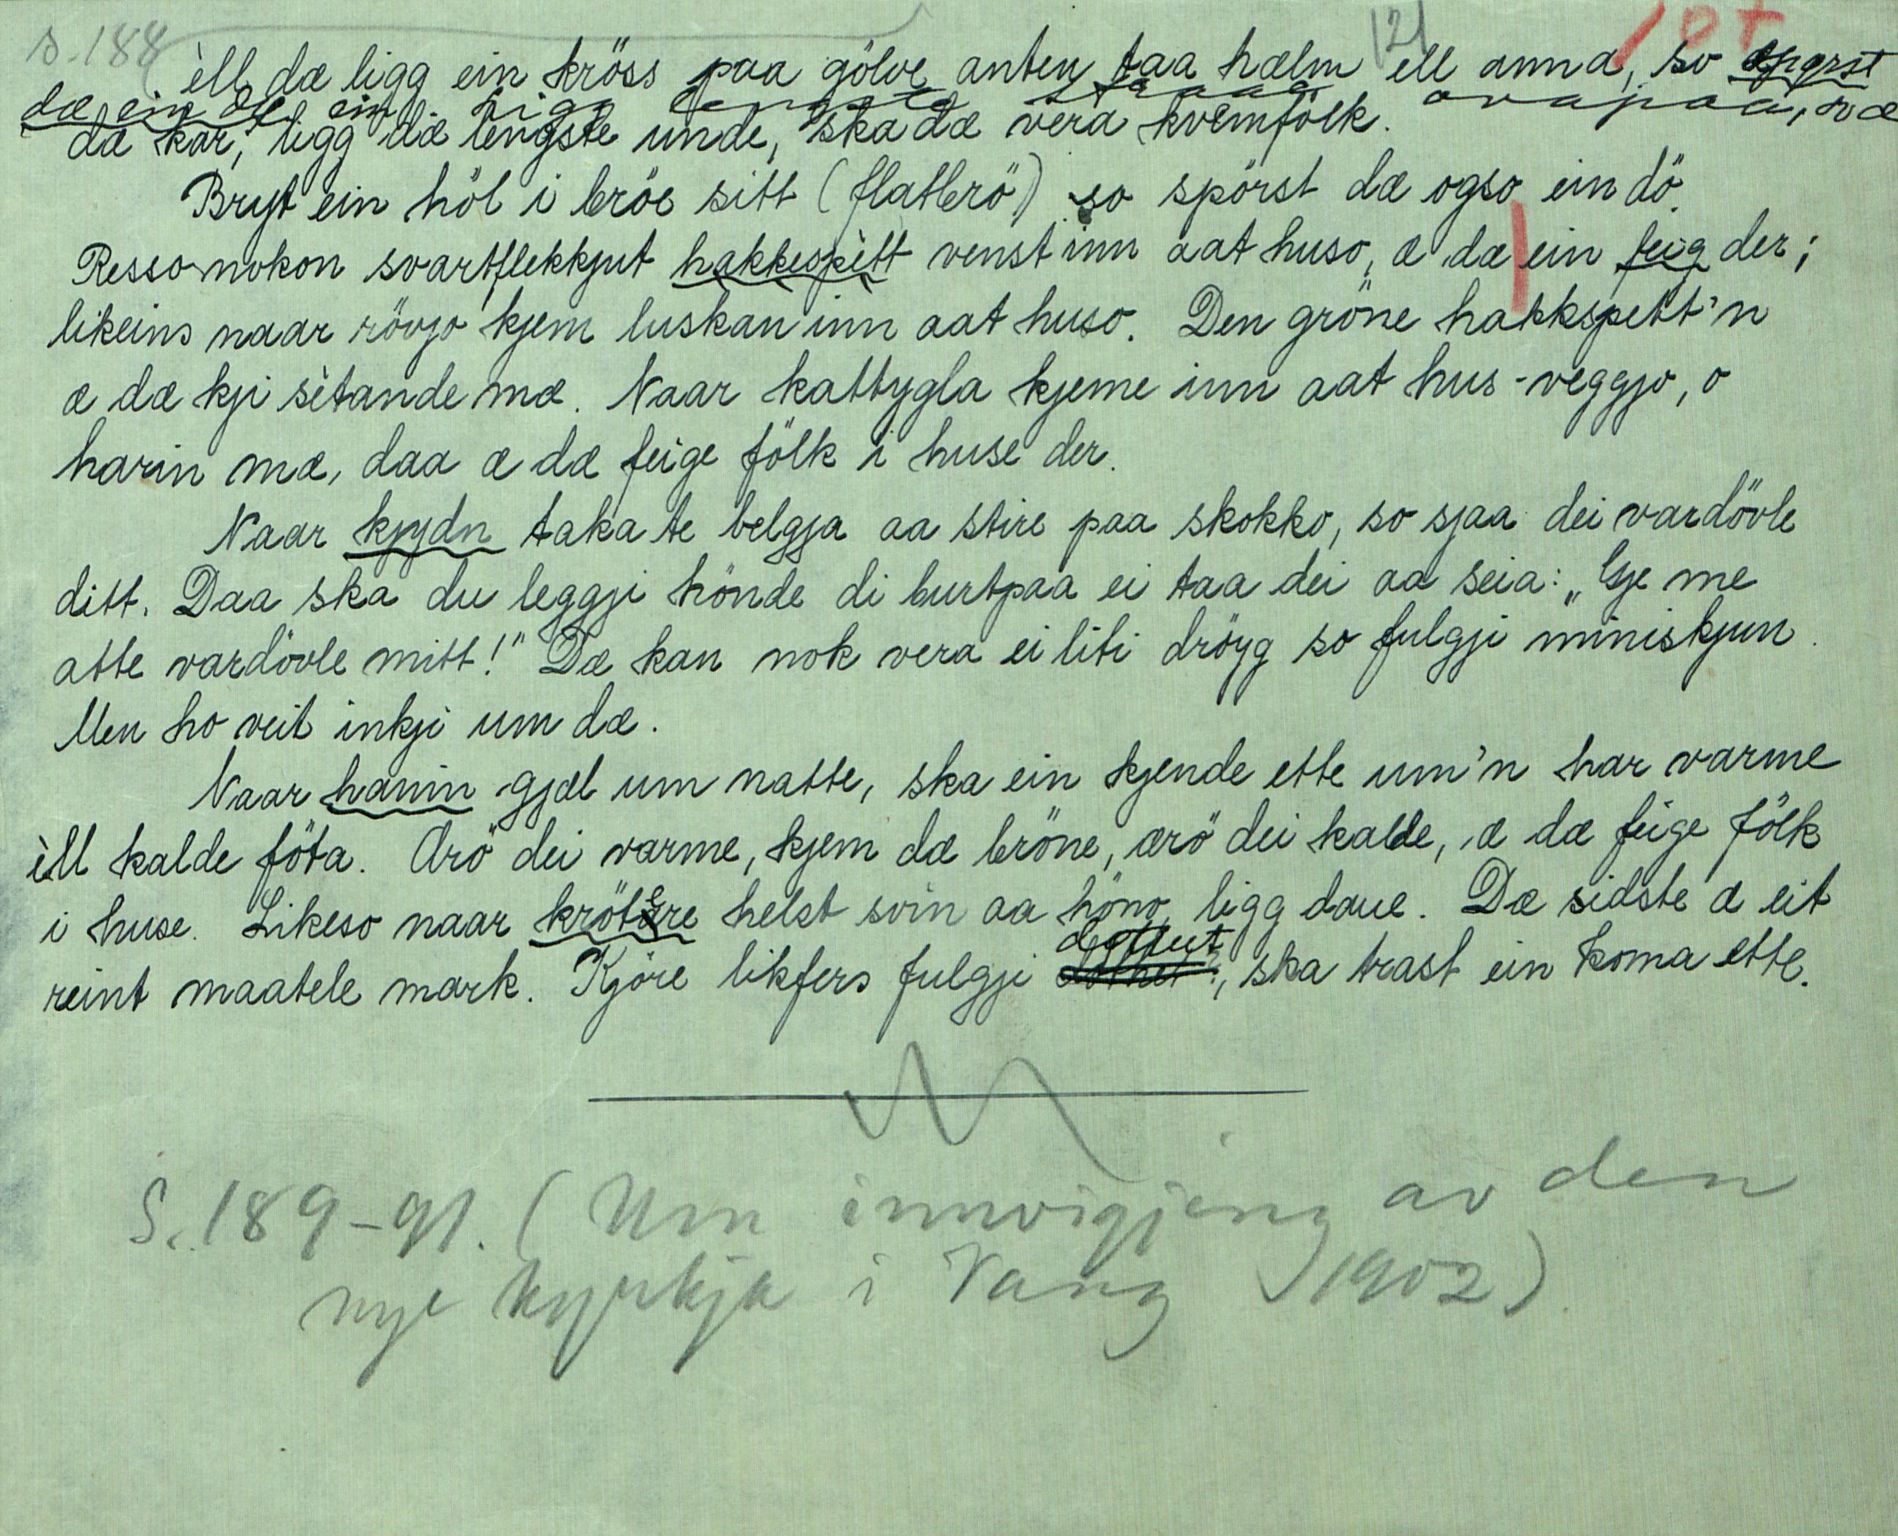 s. 188 121
èll dæ ligg ein kröss paa gölve anten taa hælm ell anna, so spørst
dæ ein dö. ein Ligg lengste straaæ ovapaa, so æ
dæ kar, ligg dæ lengste unde, ska dæ vera kvemfölk.
Bryt ein höl i bröe sitt (flatbrö) so spörst dæ ogso ein dö.
Resso nokon svartflekkjut hakkespètt venst inn aat huso, æ dæ ein feig der;
likeins naar rövjo kjem luskan inn aat huso. Den gröne hakkspett'n
æ dæ kji sètande mæ. Naar kattygla kjeme inn aat hus-veggjo, o
harin mæ, daa æ dæ feige fölk i huse der.
Naar kjydn taka te belgja aa stire paa skokko, so sjaa dei vardövle
ditt. Daa ska du leggji hönde di burtpaa ei taa dei aa seia: „Gje me
atte vardövle mitt!" Dæ kan nok vera ei liti dröyg so fulgji miniskjun.
Men ho veit inkji um dæ.
Naar hanin gjæl um natte, ska ein kjende ette um'n har varme
èll kalde föta. Ærö dei varme, kjem dæ bröne, ærö dei kalde, æ dæ feige fölk
i huse. Likeso naar krötère helst svin aa höno, ligg daue. Dæ sidste æ eit
reint maatele mark. Kjöre likfers fulgji, ska trast ein koma ette.
S. 189-91. (Um innvigjing av den
nye kyrkja i Vang 1902)